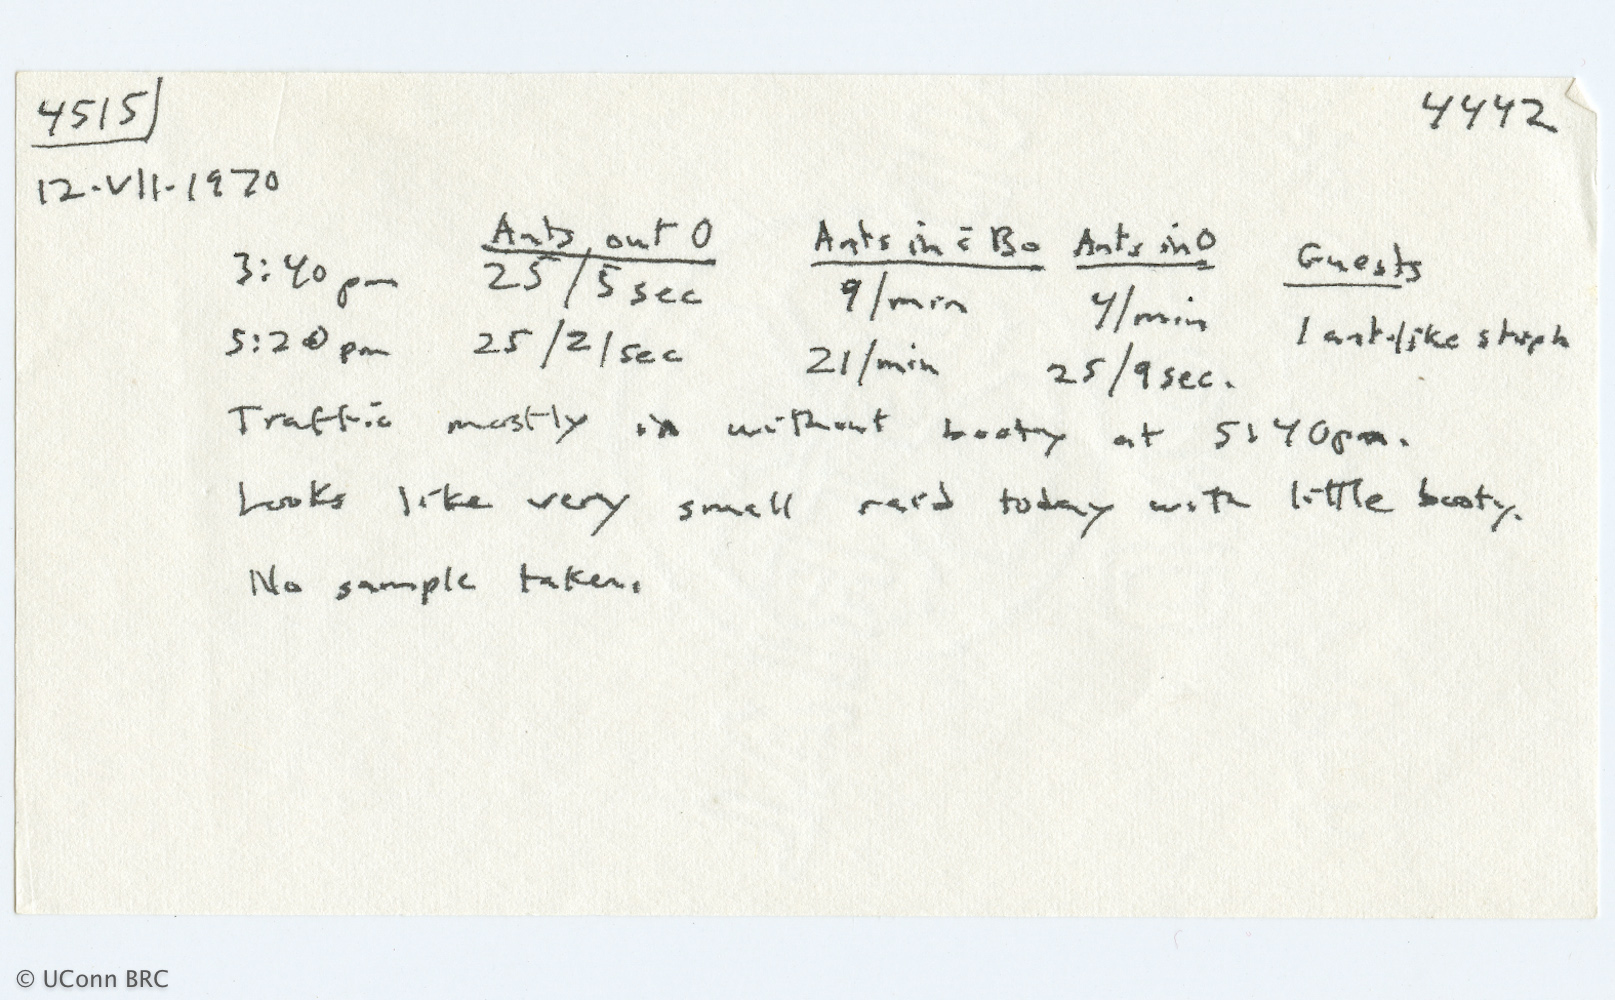 4515 4442
12-VII-1970
Ants out O Ants in c̄ Bo Ants in O Guests
3:40 pm 25/5 sec 9/min 4/min 1 ant-like staph
5:20 pm 25/21sec 21/min 25/9sec.
Traffic mostly in without booty at 5:40pm.
Looks like very small raid today with little booty.
No sample taken.
© UConn BRC